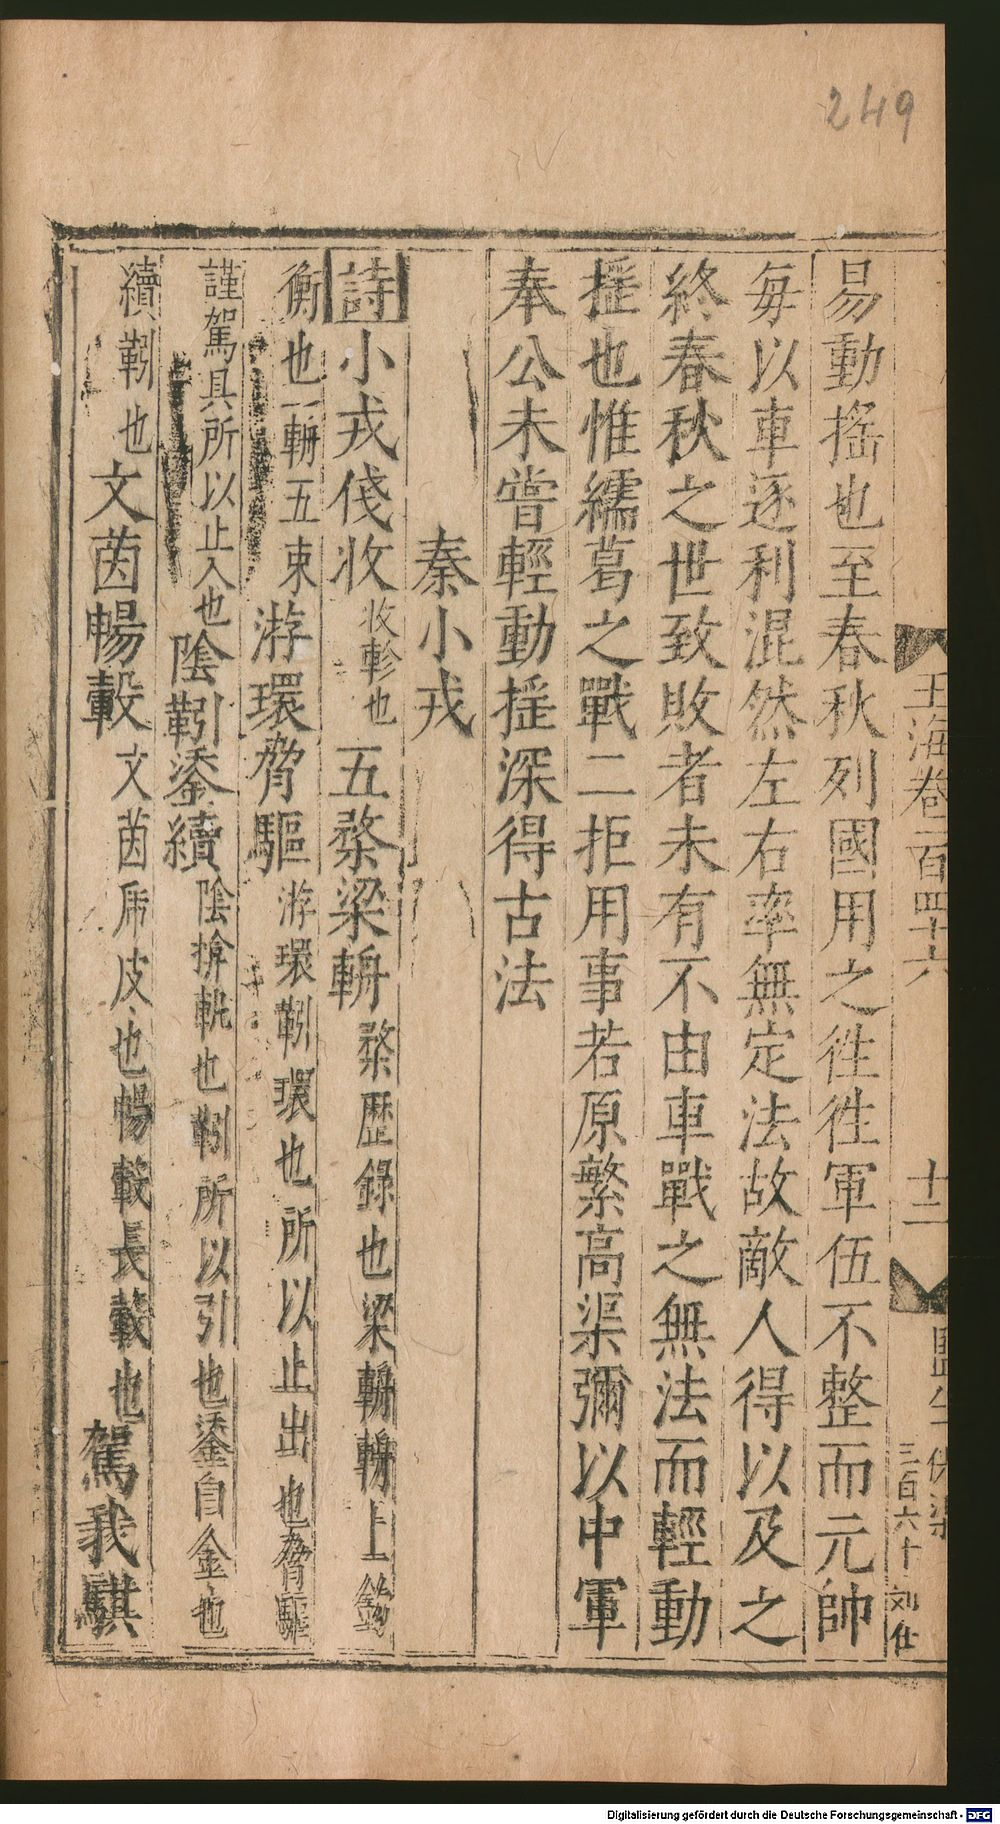 249
玉海卷一百四十六
十二
監生
三百六十
刘仕
易動搖也至春秋列國用之徃徃軍伍不整而元帥
毎以車逐利混然左右率無定法故敵人得以及之
終春秋之世致敗者未有不由車戰之無法而輕動
揺也惟繻葛之戰二拒用事若原繁髙渠彌以中軍
奉公未嘗輕動揺深得古法
秦小戎
詩小戎俴收收軫也五楘梁輈楘歷錄也梁輈輈上鈎
衡也一輈五束游環脅驅游環靷環也所以止出也脅驅
謹駕具所以止入也陰靷鋈續陰揜軓也靷所以引也鋈白金也
續靷也文茵暢轂文茵虎皮也暢轂長轂也駕我騏
Digitalisierung gefördert durch die Deutsche Forschungsgemeinschaft - DFG